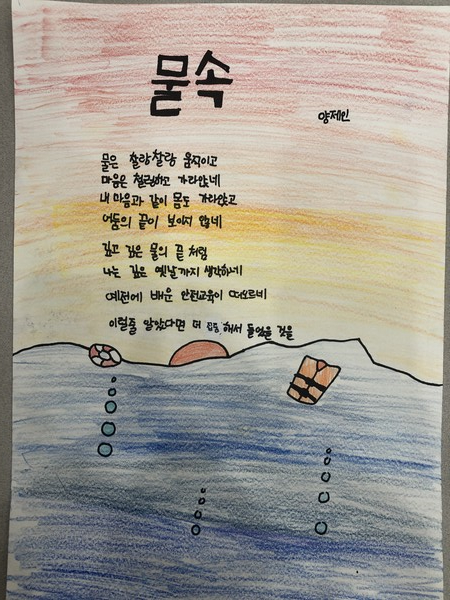 물속
양제인
물은 찰랑찰랑 움직이고
마음은 철렁하고 가라앉네
내 마음과 같이 몸도 가라앉고
어둠의 끝이 보이지 않네
깊고 깊은 물의 끝 처럼
나는 깊은 옛날까지 생각하네
예전에 배운 안전교육이 떠오르네
이럴줄 알았다면 더 집중 해서 들었을 것을